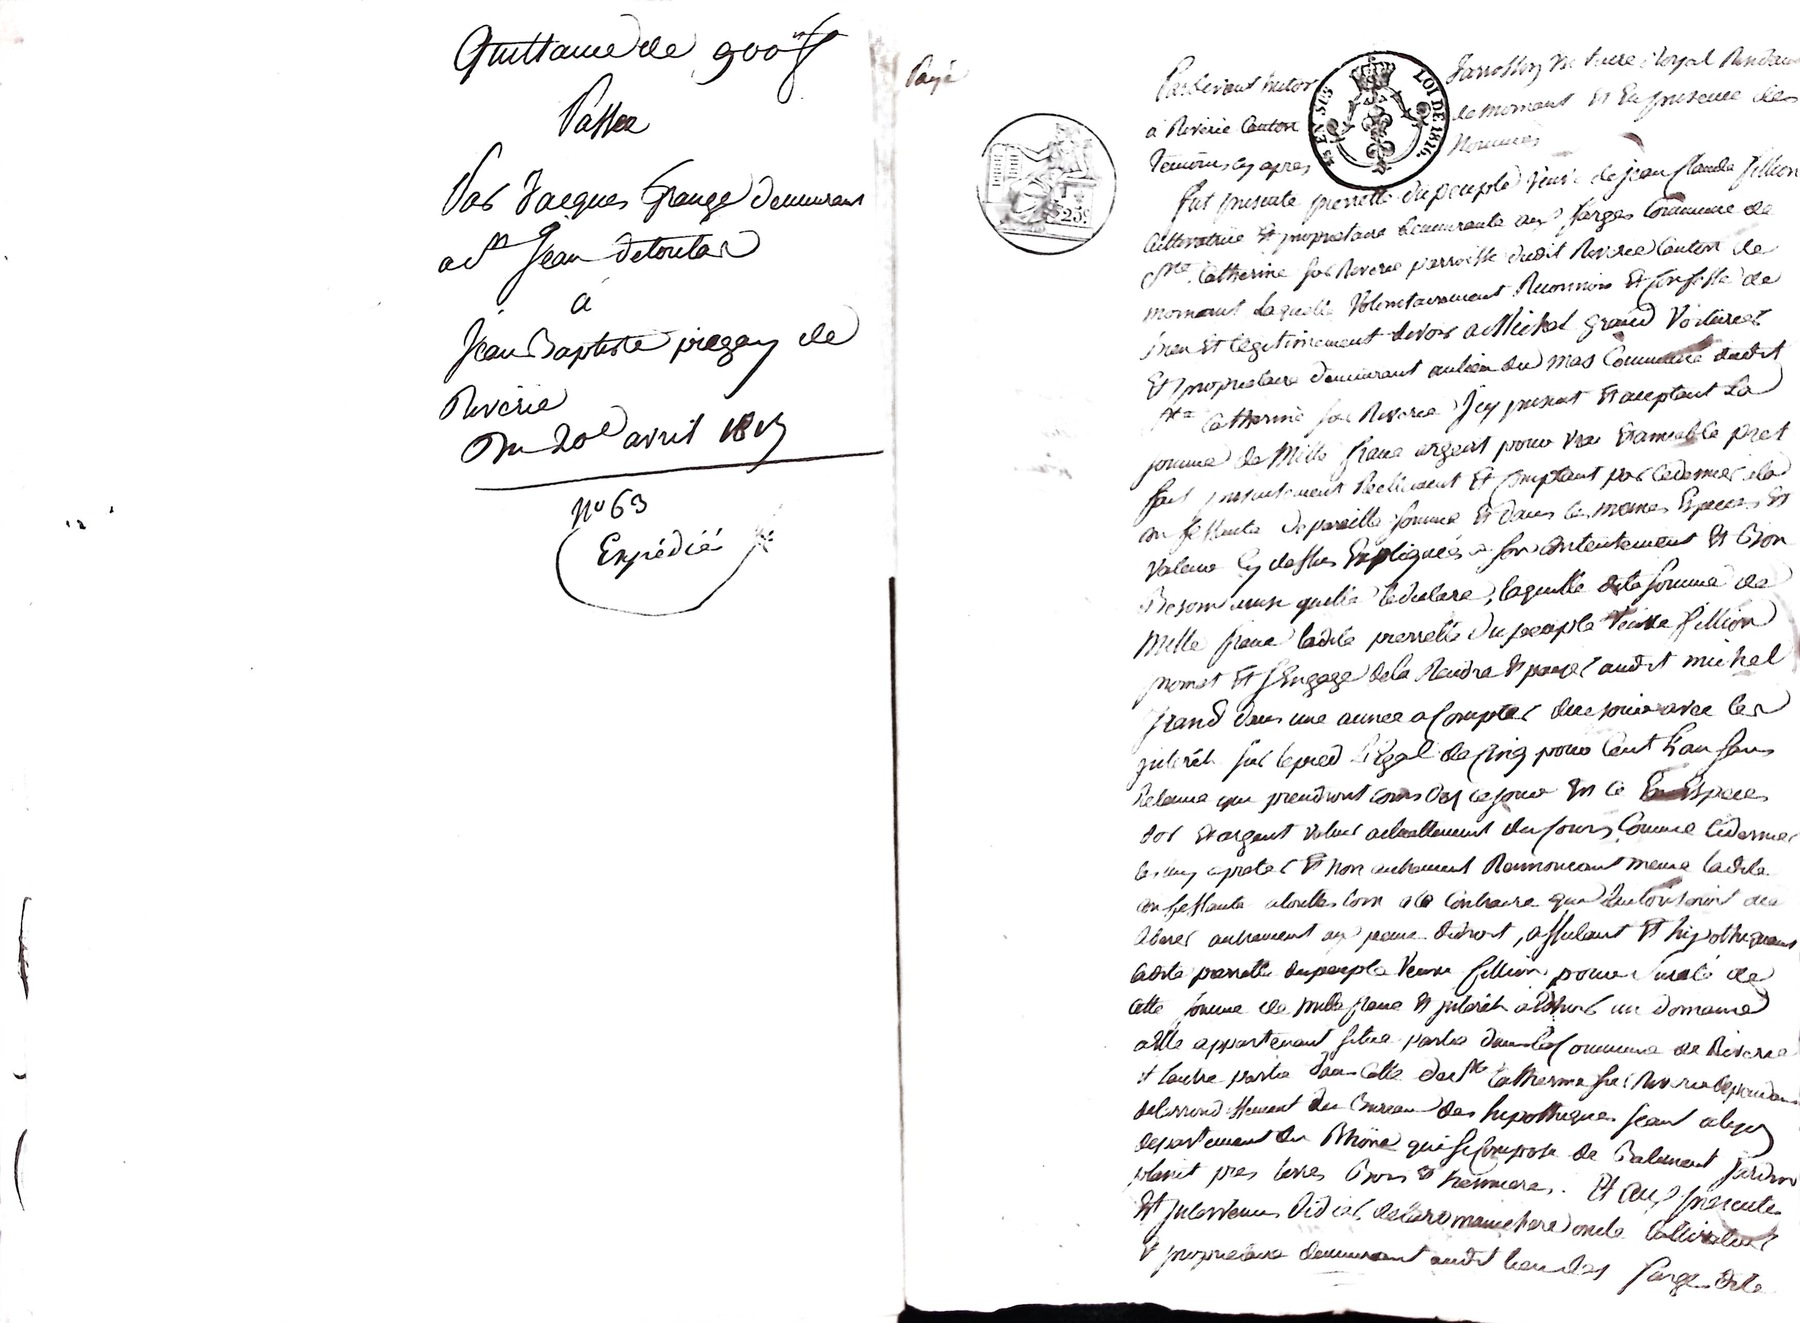 Quittance de 900 f
Passée
Par Jacques Grange demeurant
a St Jean detoulas
à
Jean Baptiste piegay de
Riverie
Du 20e avril 1819
No 63
Expédiée
Payé
Pardevant Notaire Royal Residant
à Riverie Canton de mornant Et En presence des
Temoins cy apres Nommés
EN SUS LOI DE 1816.
25c
Fut presente pierrette dupeuple veuve de jean Claude fillion
Cultivatrice Et proprietaire demeurante aux farges Commune de
Ste Catherine sur Riverie parroisse dudit Riverie Canton de
mornant Laquelle Volontairement Reconnois Et Confesse de
bien Et legitimement devoir a Michel grand Voiturier
Et proprietaire demeurant au lieu du mas Commune dudit
Ste Catherine sur Riverie Icy present Et acceptant La
somme de Mille franc argent pour vrai Et amiable pret
fait presentement Reellement Et Comptant par cedernier ala
Confessante de pareille somme Et dans les memes Especes Et
valeur Cy dessus Expliquées a son Contentement Et Bon
Besoin ainsi quelle le declare, laquelle dite somme de
Mille franc ladite pierrette Du peuple Veuve fillion
promet Et s'Engage dela Rendre Et payer audit michel
grand dans une année a Compter duejour avec les
interêt sur lepied Légal de Cinq pour Cent L'an sans
Retenue qui prendront cours des cejour Et ce En Especes
dor Et argent valeur actuellement du Cours, Comme cedernier
les luy a preter Et non autrement Renoncant meme ladite
Confessante a toutes Loix a ce Contraire qui lautoriseroint de se
liberer autrement aux peine de droit, assulant Et hipothequant
ladite pierrette dupeuple Veuve fillion, pour sureté de
cette somme de Mille franc Et interêt un domaine
a Elle appartenant situé partie dans la Commune de Riverie
Et lautre partie dans Celle de Ste Catherine sur Riverie dependant
delarrondissement du Bureau des hipotheques seant a lyon
departement du Rhône qui se Compose de Batiment jardin
plaint pres terres Bois Et hermeres. Et aux presente
Et proprietaire demeurant audit lieu des farges dite